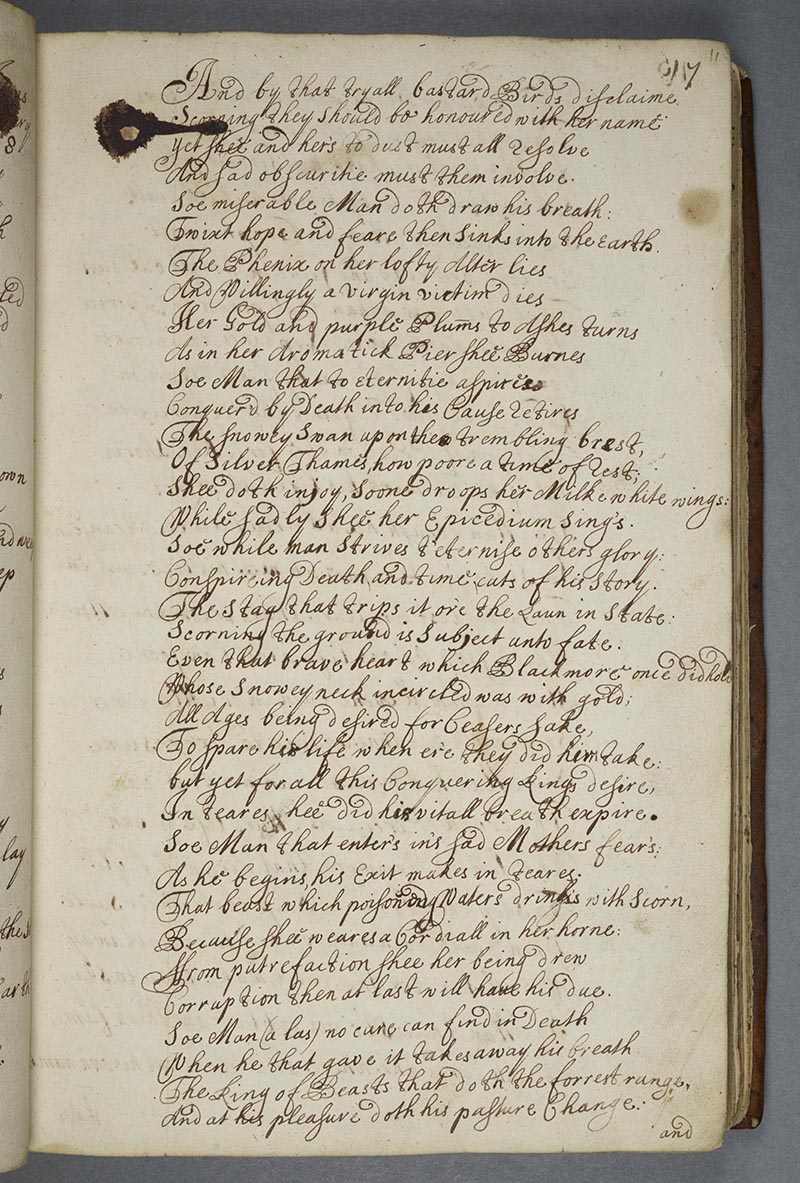 17
And by that tryall bastard Birds disclaime
Scorning they should be honoured with her name
yet shee and hers to dust must all resolve
And sad obscuritie must them involve.
Soe miserable Man doth draw his breath:
Twixt hope and feare then sinks into the earth.
The Phenix on her lofty Alter lies
And Willingly a virgin victim dies
Her Gold and purple Plums to Ashes turns
As in her Aromatick Pier shee Burnes
Soe Man that to eternitie aspires
Conquerd by Death into his Cause retires
The snowey Swan upon the trembling brest,
Of Silver Thames, how poore a time of rest;
Shee doth injoy, soone droops her Milke white wings:
While sadly shee her Epicedium sings.
Soe while man strives t'eternise others glory:
Conspireing Death and time cuts of his story.
The Stag that trips it ore the Laun in state:
Scorning the ground is Subject unto fate.
Even that brave heart which Blackmore once did hold
Whose snowey neck incircled was with gold;
All Ages being desired for Ceasers sake,
To spare his life when ere they did him take:
but yet for all this Conquering Kings desire,
In teares hee did his vitall breath expire.
Soe Man that enters in's sad Mothers fears:
As he begins, his Exit makes in teares.
That beast which poisond Waters drinks with scorn,
Because shee weares a Cordiall in her horne:
As from putrefaction shee her being drew
Corruption then at last will have his due.
Soe Man (alas) no cure can find in Death
When he that gave it takes away his breath
The King of Beasts that doth the forrest range,
And at his pleasure doth his pasture Change:
and